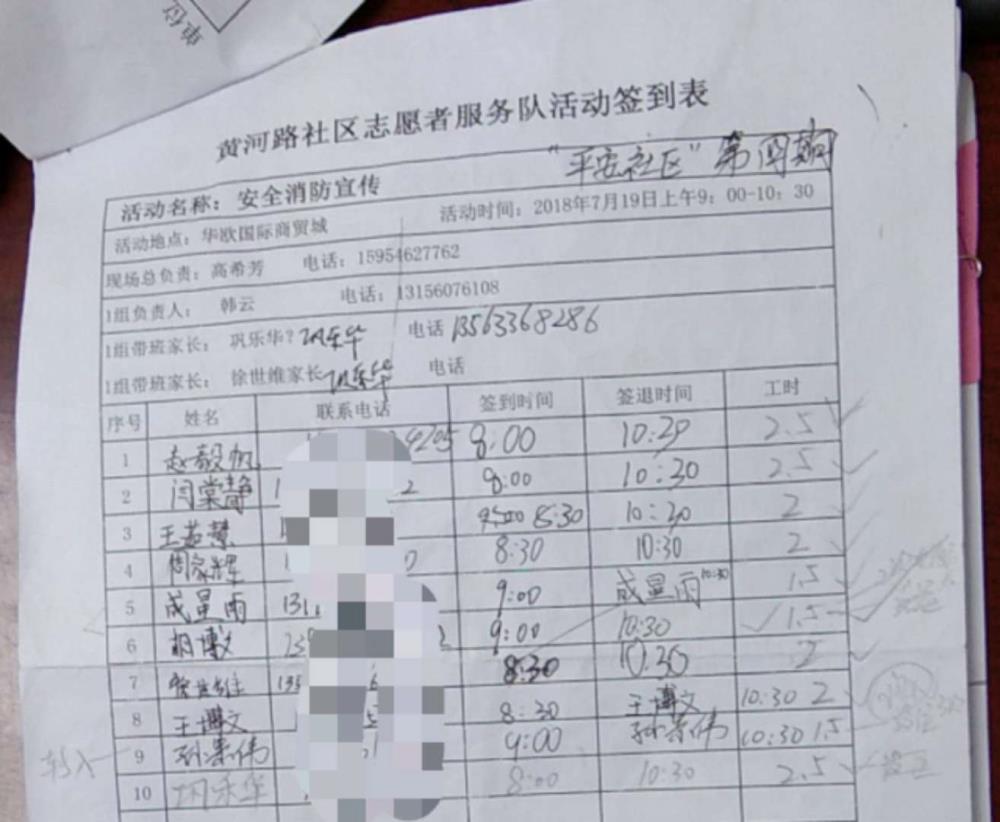 单位
黄河路社区志愿者服务队活动签到表
"平安社区"第四期
活动名称：安全消防宣传
活动地点：华欧国际商贸城 活动时间：2018年7月19日上午9：00-10：30
现场总负责：高希芳 电话：15954627762
1组负责人： 韩云 电话：13156076108
1组带班家长： 巩乐华？巩乐华 电话 13563368286
1组带班家长： 徐世维家长 巩乐华 电话
序号 姓名 联系电话 签到时间 签退时间 工时
1 赵毅帆 4205 8:00 10:29 2.5
2 闫棠静 1 2 8:00 10:30 2.5
3 王若慧 8:30 10:20 2
4 周家辉 1 0 8:30 10:30 2
5 成星雨 131 9:00 成星雨 10:30 1.5
6 胡博文 9:00 10:30 1.5
7 徐世维 133 6 8:30 10:30 2
8 王博文 8:30 王博文 10:30 2
转入 9 孙崇伟 9:00 孙崇伟 10:30 1.5
10 巩乐华 8:00 10:30 2.5